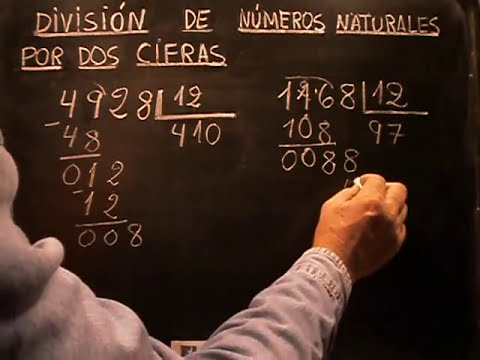 DIVISIÓN DE NÚMEROS NATURALES
POR DOS CIFRAS
4928 12
-48 410
012
-12
008
1168 12
108 97
0088